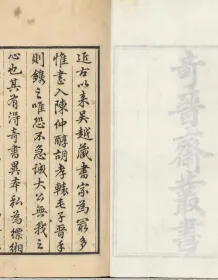 奇晉齋叢書
近古以來吳越藏書家為冣多
惟書入陳仲醇胡孝轅毛子晉手
則鐫之唯恐不急誠大公無我之
心也其有得奇書異本私為縹緗